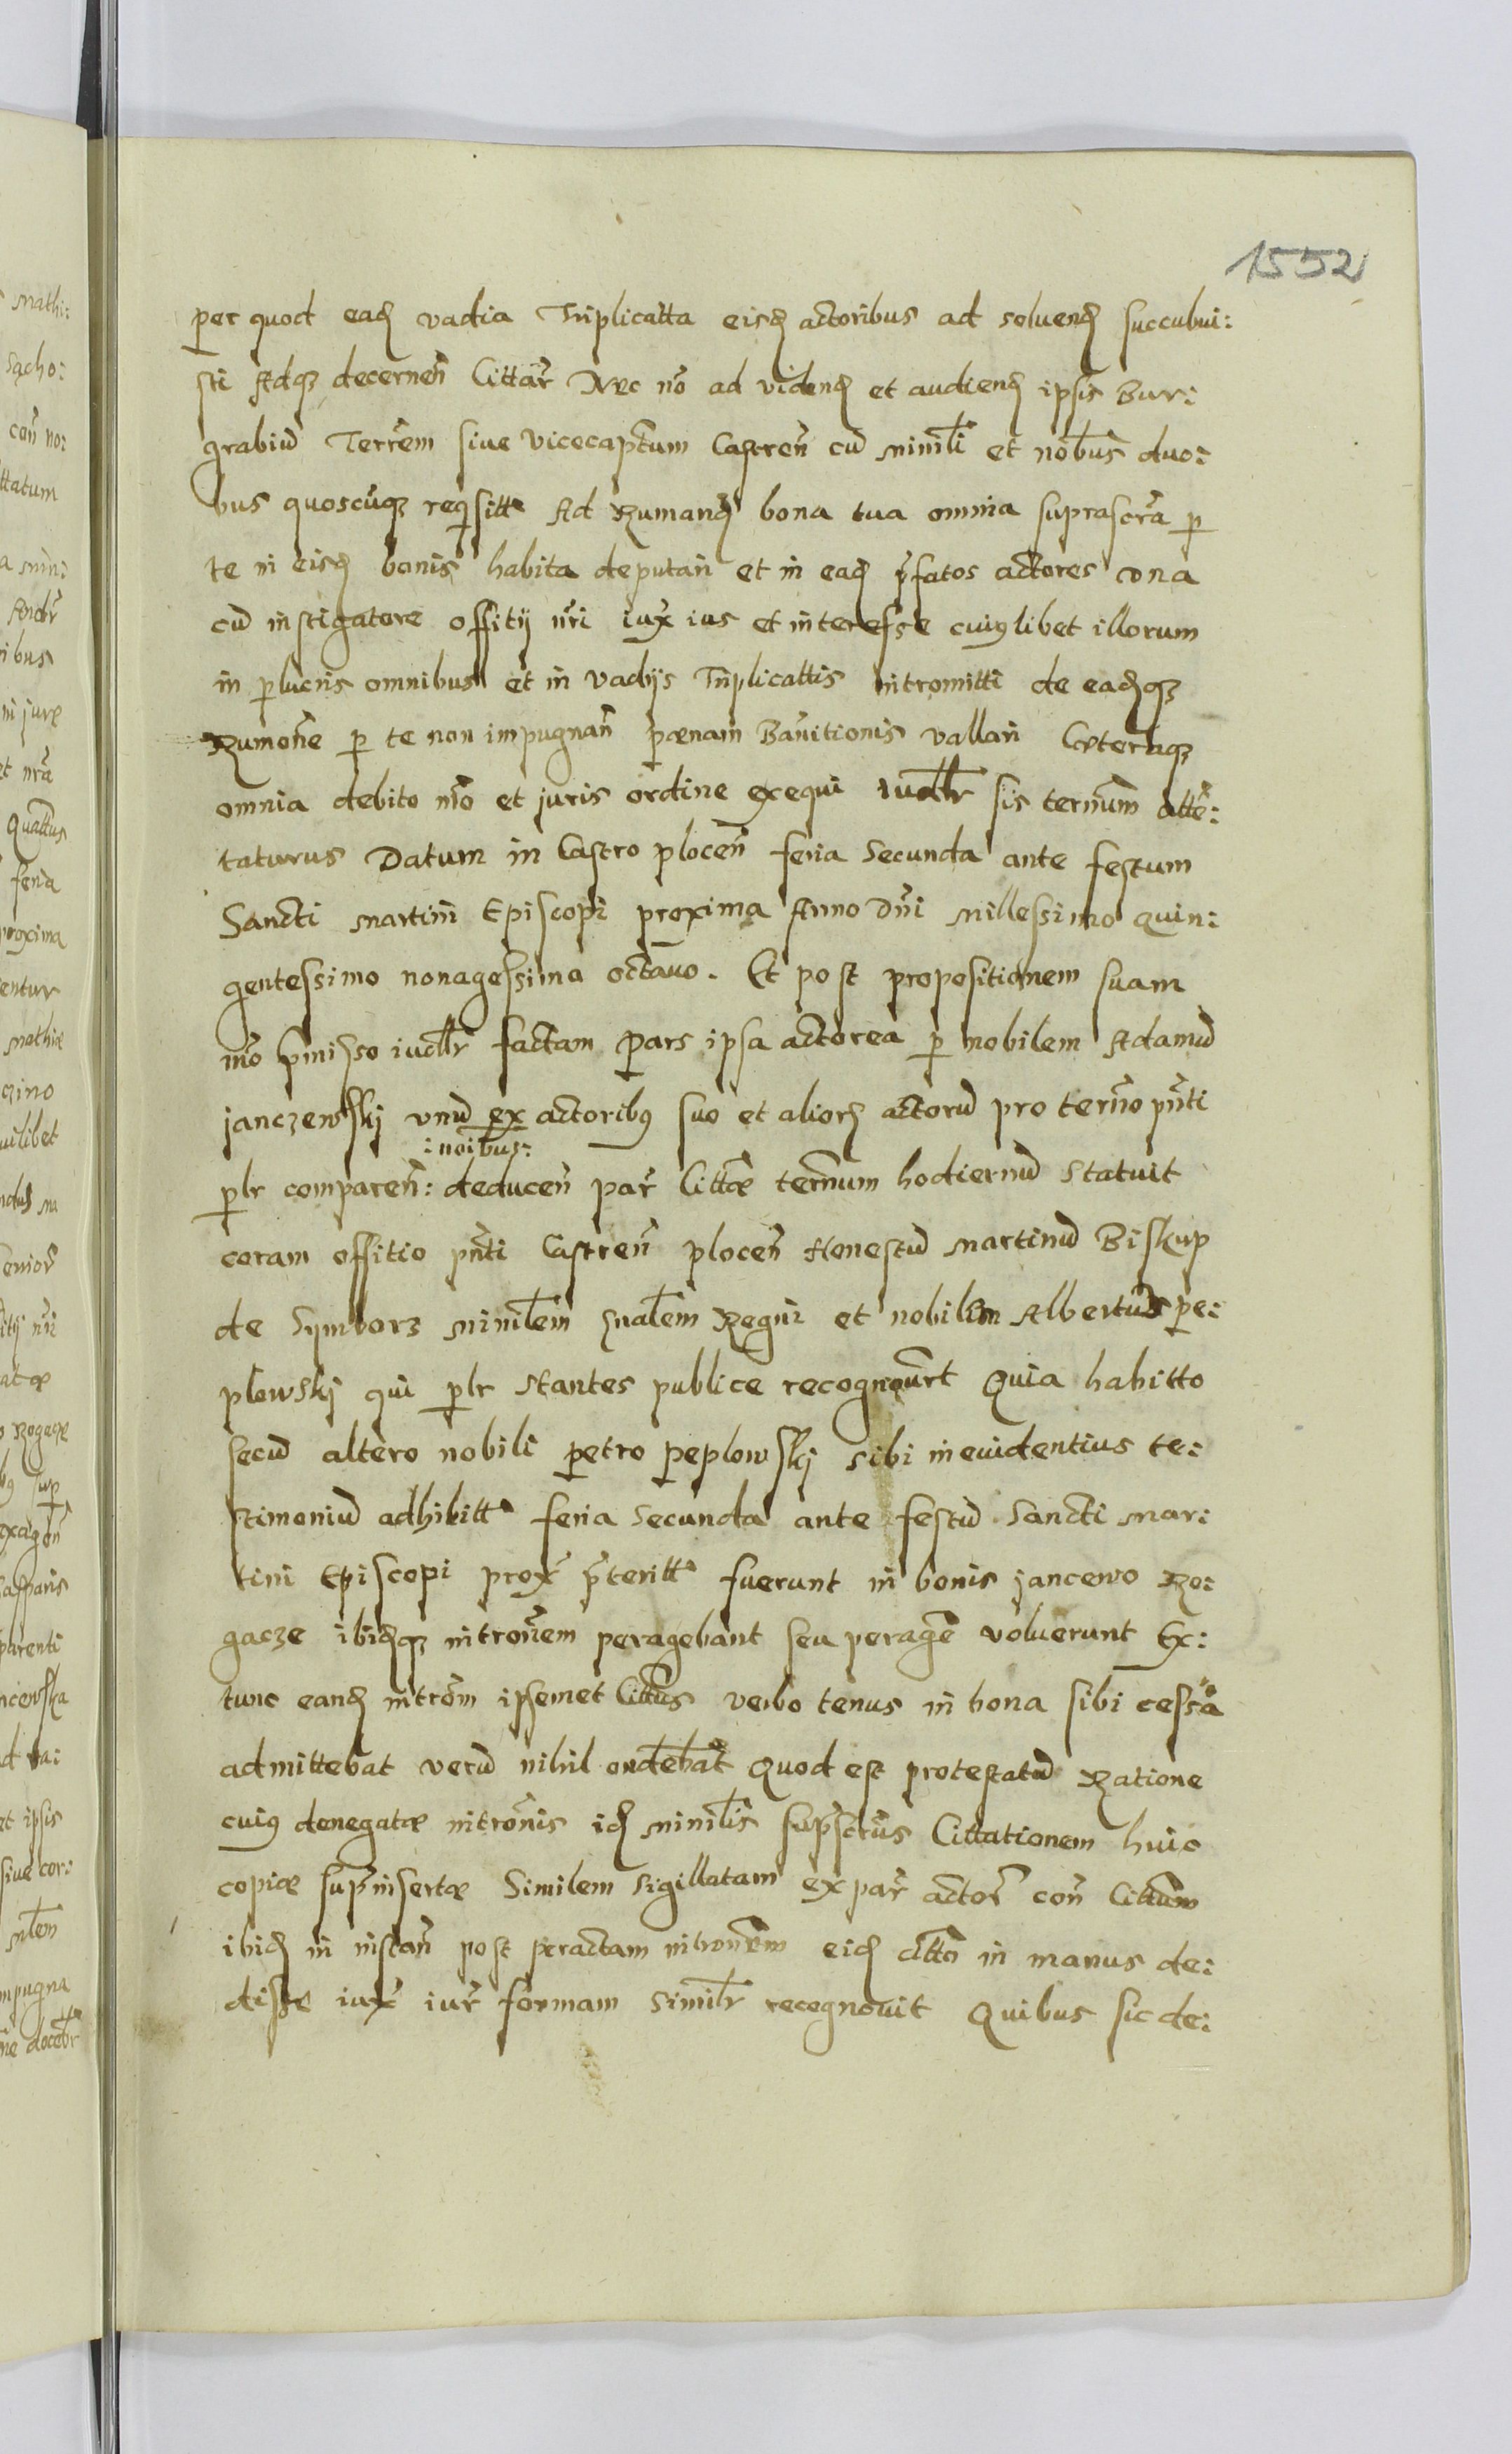 1552
per quod eadē vadia Triplicatta eisdē actoribus ad soluendē succubui:
sti Adqȝ decernen̄ Cittār Nec nō ad videndē et audiendē ipsis Bur:
grabiū Terrēm siue vicecaptūm Castren̄ cū ministlī et nobūs duo:
bus quoscūqȝ reqisittˢ Ad Rumandē bona tua omnia suprascrā p
te in eisdē bonis habita deputari et in eadē p̄fatos actores vna
cū instigatore offitij nrī iux̄ ius et interesse cuiuslibet illorum
in p̱lucris omnibus et in vadijs Triplicattis intromitti de eadēqȝ
Rumonē p te non impugnan̄ pænam Bannitionis vallari Cæteraqȝ
omnia debito mō et juris ordine exequi iudlr̄ sis termūm atte:
taturus Datum in Castro plocen̄ feria Secunda ante festum
Sancti Martini Episcopi proxima Anno Dnī Millessimo quin:
gentessimo nonagessimo octāuo. Et post propositionem suam
mō p̄misso iudlr̄ factam Pars ipsa actorea p nobilem Adamū
janczewskj vnū ex actoribꝰ suo et aliorē actorū pro termō pn̄ti
:noībus:
plr̄ comparen̄: deducen̄ par̄ Cittæ termūm hodiernū Statuit
coram offitio pn̄ti Castren̄ plocen̄ Honestū Martinū Biskup
de Symborz ministlem gnalem Regni et nobilem Albertum pe:
plowskj qui plr̄ stantes publice recognouert Quia habitto
secū altero nobili Petro Peplowskj sibi in euidentius te:
stimoniū adhibittˢ feria Secunda ante festū Sancti Mar:
tini Episcopi prox̄ p̄terittˢ fuerunt in bonis jancewo Ro:
gacze ibidēqȝ intronēm peragebant seu peragere voluerunt Ex:
tunc eandē intrōm ipsemet Cittūs verbo tenus in bona sibi cessa
admittebat verū nihil ondebat Quod est protestatū Ratione
cuiꝰ denegatæ intronīs idē ministlis suprascrūs Cittationem huic
copiæ supr̄insertæ Similem sigillatam ex par̄ actor̄ con̄ Cittūm
ibidē in instan̄ post peractam intronēm eidē Citto in manus de:
disse iux̄ iur̄ formam Similr̄ recognouit Quibus sic de: